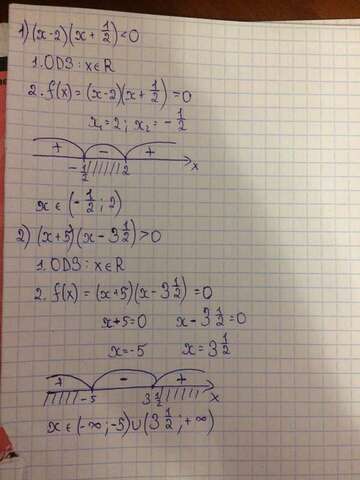 1) (x-2)(x+1/2)<0
1. ОДЗ: x∈R
2. f(x)=(x-2)(x+1/2)=0
x₁=2; x₂=-1/2
+ - +
-1/2 2 x
x∈(-1/2;2)
2) (x+5)(x-3 1/2)>0
1. ОДЗ: x∈R
2. f(x)=(x+5)(x-3 1/2)=0
x+5=0 x-3 1/2=0
x=-5 x=3 1/2
+ - +
-5 3 1/2 x
x∈(-∞;-5)∪(3 1/2;+∞)